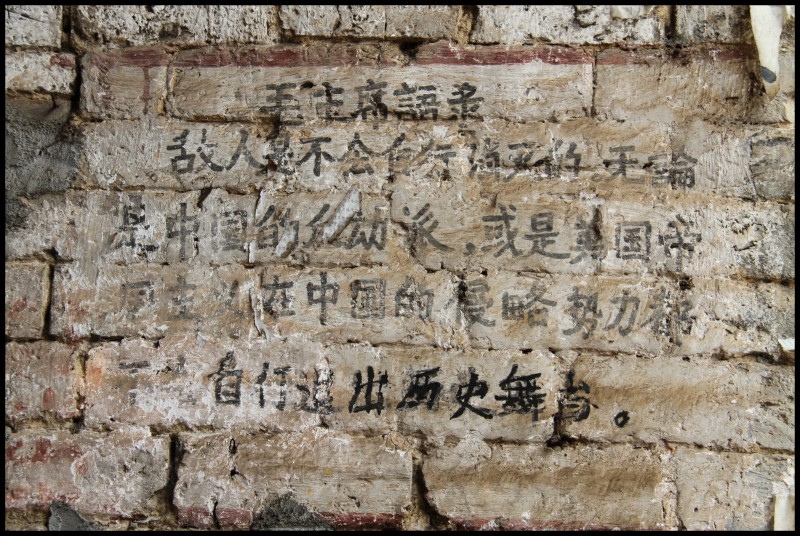 毛主席語录
敌人是不会自行消灭的 无論
是中國的反动派,或是美国帝
国主义在中國的侵略势力都
不会自行退出历史舞台。